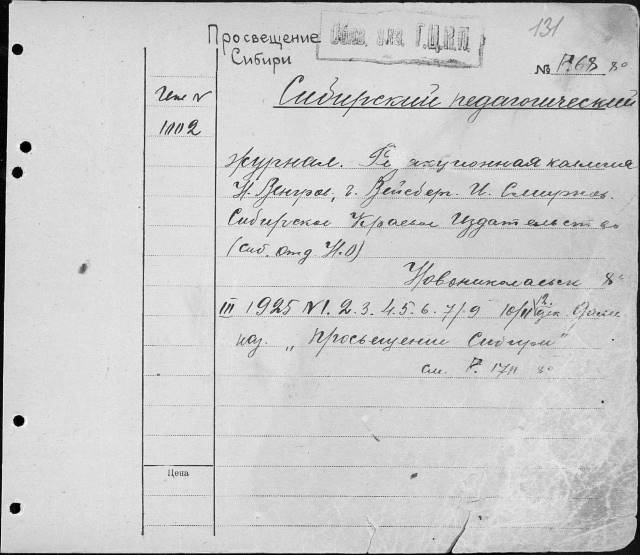 Просвещение
Сибири
131
№ Р.68 8°
1002
Сибирский педагогический
журнал. Редакционная коллегия
Н. Венгров, г. Вейсберг. И. Смирнов.
Сибирское Краевое Издательство
(сиб. отд. Н.О)
Новониколаевск 8°
III 1925 №1. 2. 3. 4. 5. 6. 7/9 10/11 12. дек.
наз. „Просвещение Сибири"
см. Р. 1711 8°
Цена